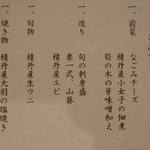 一、前菜
なごみチーズ
積丹産小女子の佃煮
筍の木の芽味噌和え
一、造り
旬の刺身盛
妻一式、山葵
積丹産エビ
一、旬物
積丹産生ウニ
一、焼き物
積丹産大羽の塩焼き